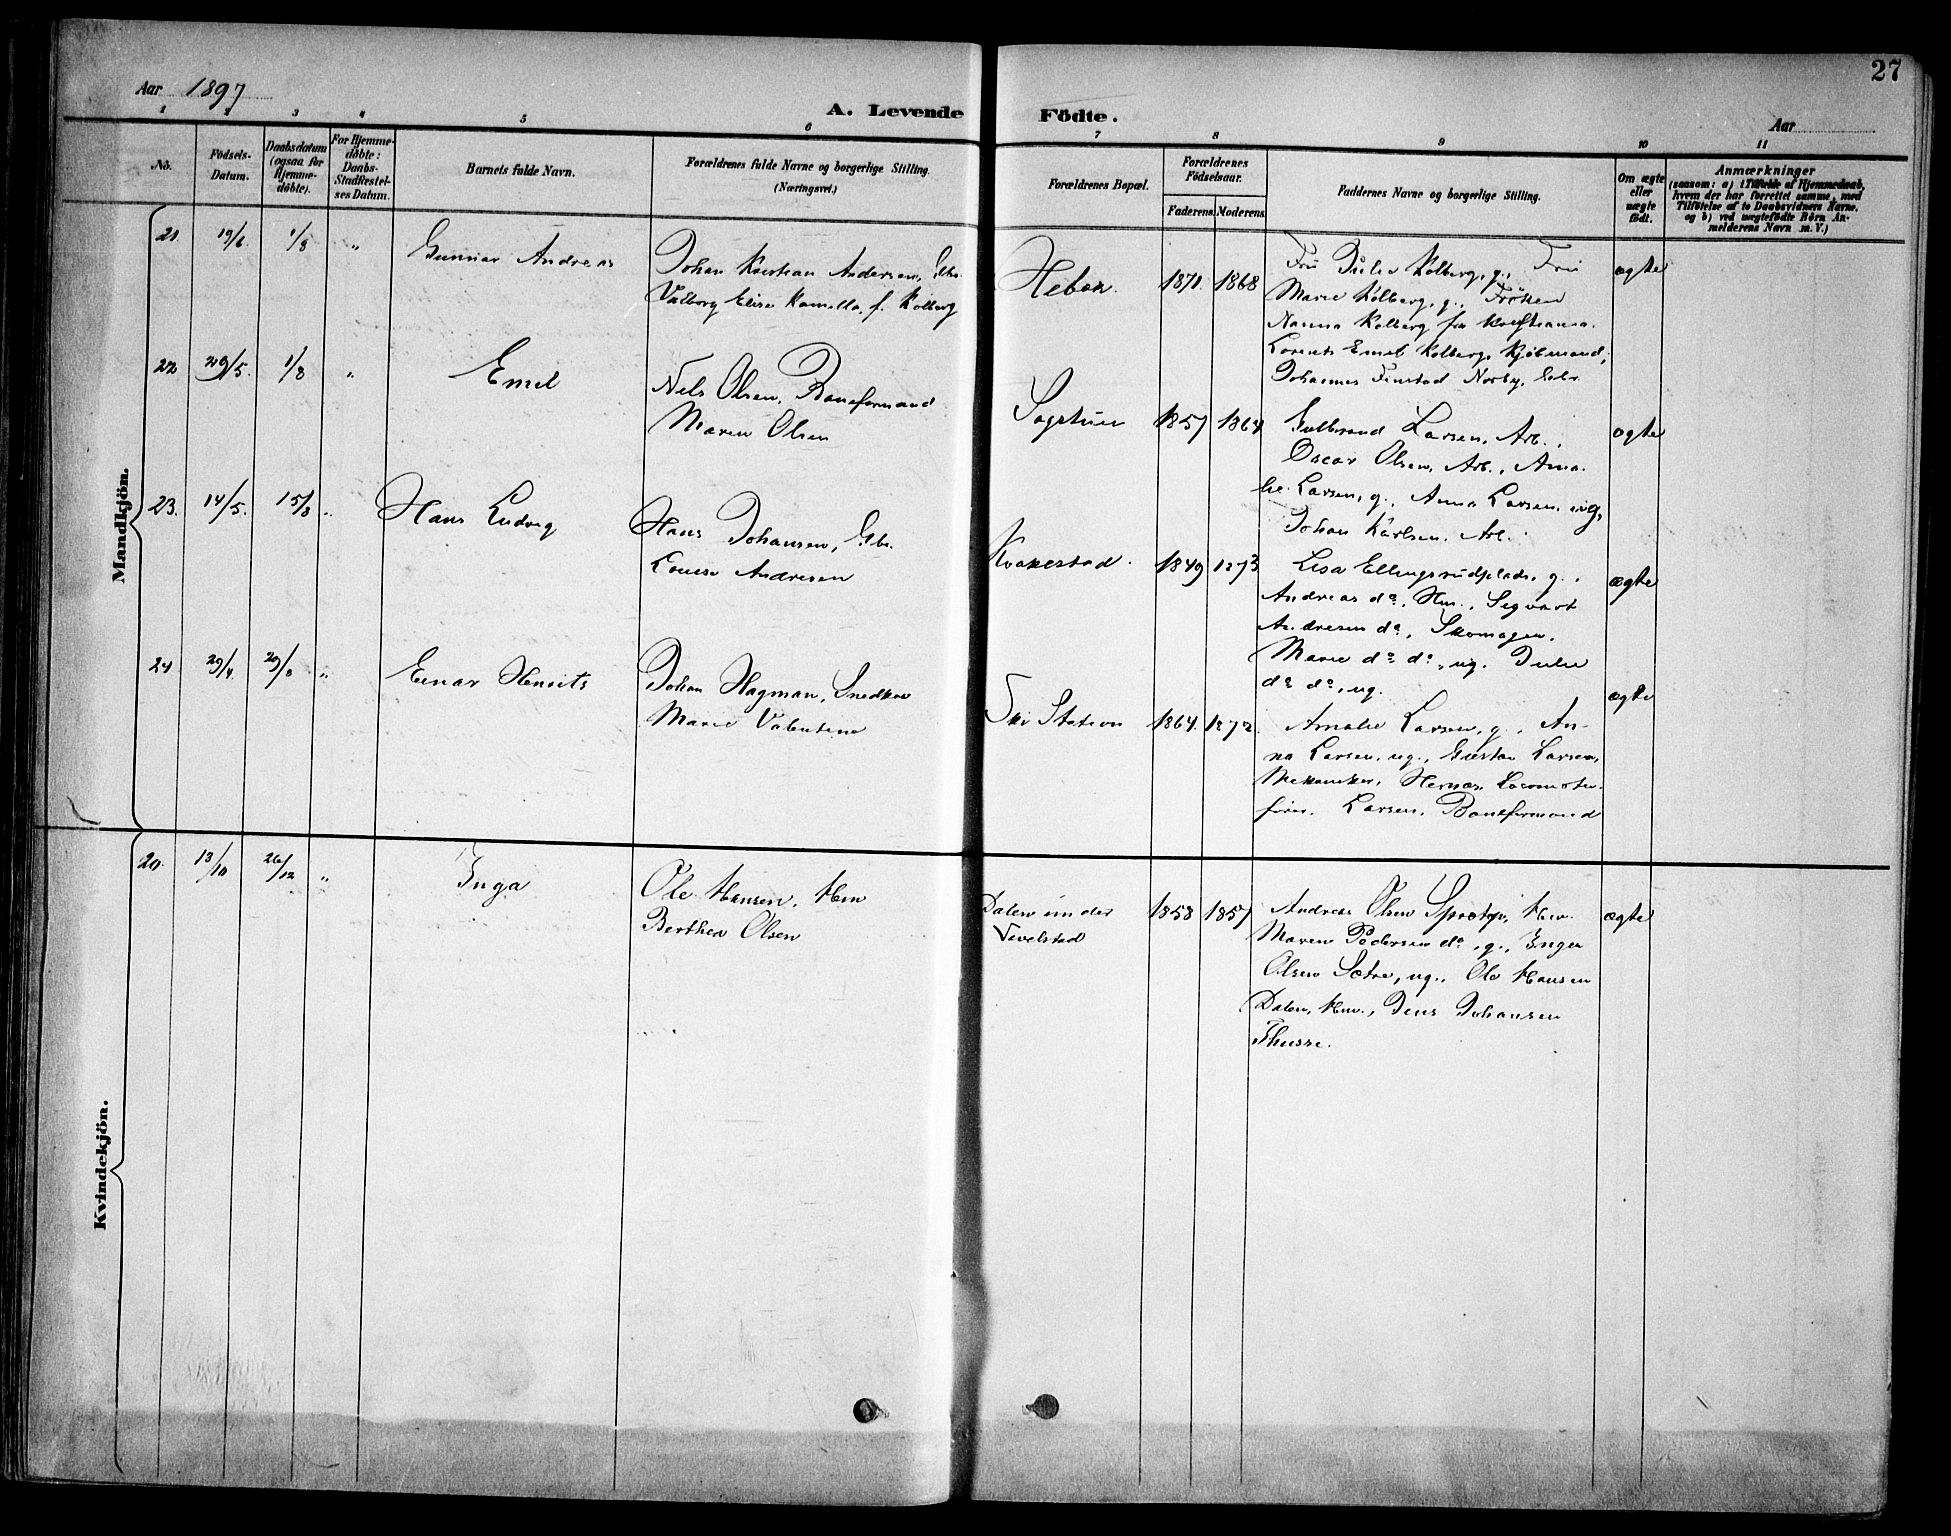 27
Aar 1897
A. Levende Födte.
Aar
1 2 3 4 5 6 7 8 9 10 11
No.
Fødsels-
Datum.
Daabsdatum
(ogsaa for
Hjemme-
døbte).
For Hjemme-
døbte:
Daabs-
Stadfæstel-
ses Datum.
Barnets fulde Navn.
Forældrenes fulde Navne og borgerlige Stilling.
(Næringsvei.)
Forældrenes Bopæl.
Forældrenes
Fødselsaar.
Faderens Moderens
Faddernes Navne og borgerlige Stilling.
Om ægte
eller
uægte
født.
Anmærkninger
(saasom: a) i Tilfælde af Hjemmedaab,
hvem der har forrettet samme, med
Tilføielse af to Daabsvidners Navne,
og b) ved uægtefødte Børn An-
melderens Navn m. V.)
Mandkjön.
21. 19/6. 1/8 "
Gunnar Andreas
Johan Kristian Andersen, Gbr.
Valborg Elise Kamilla, f. Kolberg
1871. 1868
Fru Julie Kolberg, g., Fru
Marie Kolberg, g., Frøken
Nanna Kolberg fra Kristiania.
Lorents Emil Kolberg, Kjøbmand,
Johannes Finstad Norby, Gbr.
ægte
22 29/5. 1/8 "
Emil
Nils Olsen, Baneformand
Maren Olsen
Sagstuen
1857 1864
Gulbrand Larsen, Arb.,
Oscar Olsen, Arb., Ama-
lie Larsen, g., Anna Larsen, ug,
Johan Karlsen, Arb.
ægte
23. 14/5. 15/8 "
Hans Ludvig
Hans Johansen, Gbr.
Louise Andresen
Kvakestad.
1849 1873
Lisa Ellingsrudplads, g.,
Andreas do, Hm., Sigvart
Andresen do, Skomager,
Marie do do, ug. Julie
do do, ug.
ægte
24 29/4. 29/8 "
Einar Henrits
Johan Hagman, Snedker
Marie Valentine
Ski Station
1864. 1872.
Amalie Larsen, g., An-
na Larsen, ug., Gustav Larsen,
Mekaniker, Locomotiv-
fører. Larsen, Baneformand
ægte
Kvindekjön.
20. 13/10 26/12 "
Inga
Ole Hansen, Hm
Berthea Olsen
Dalen under
Vevelstad
1858 1857
Andreas Olsen Hm.
Maren Pedersen do, g., Inger
Olsen Sætre, ug., Ole Hansen
Dalen, Hm., Jens Johansen
ægte